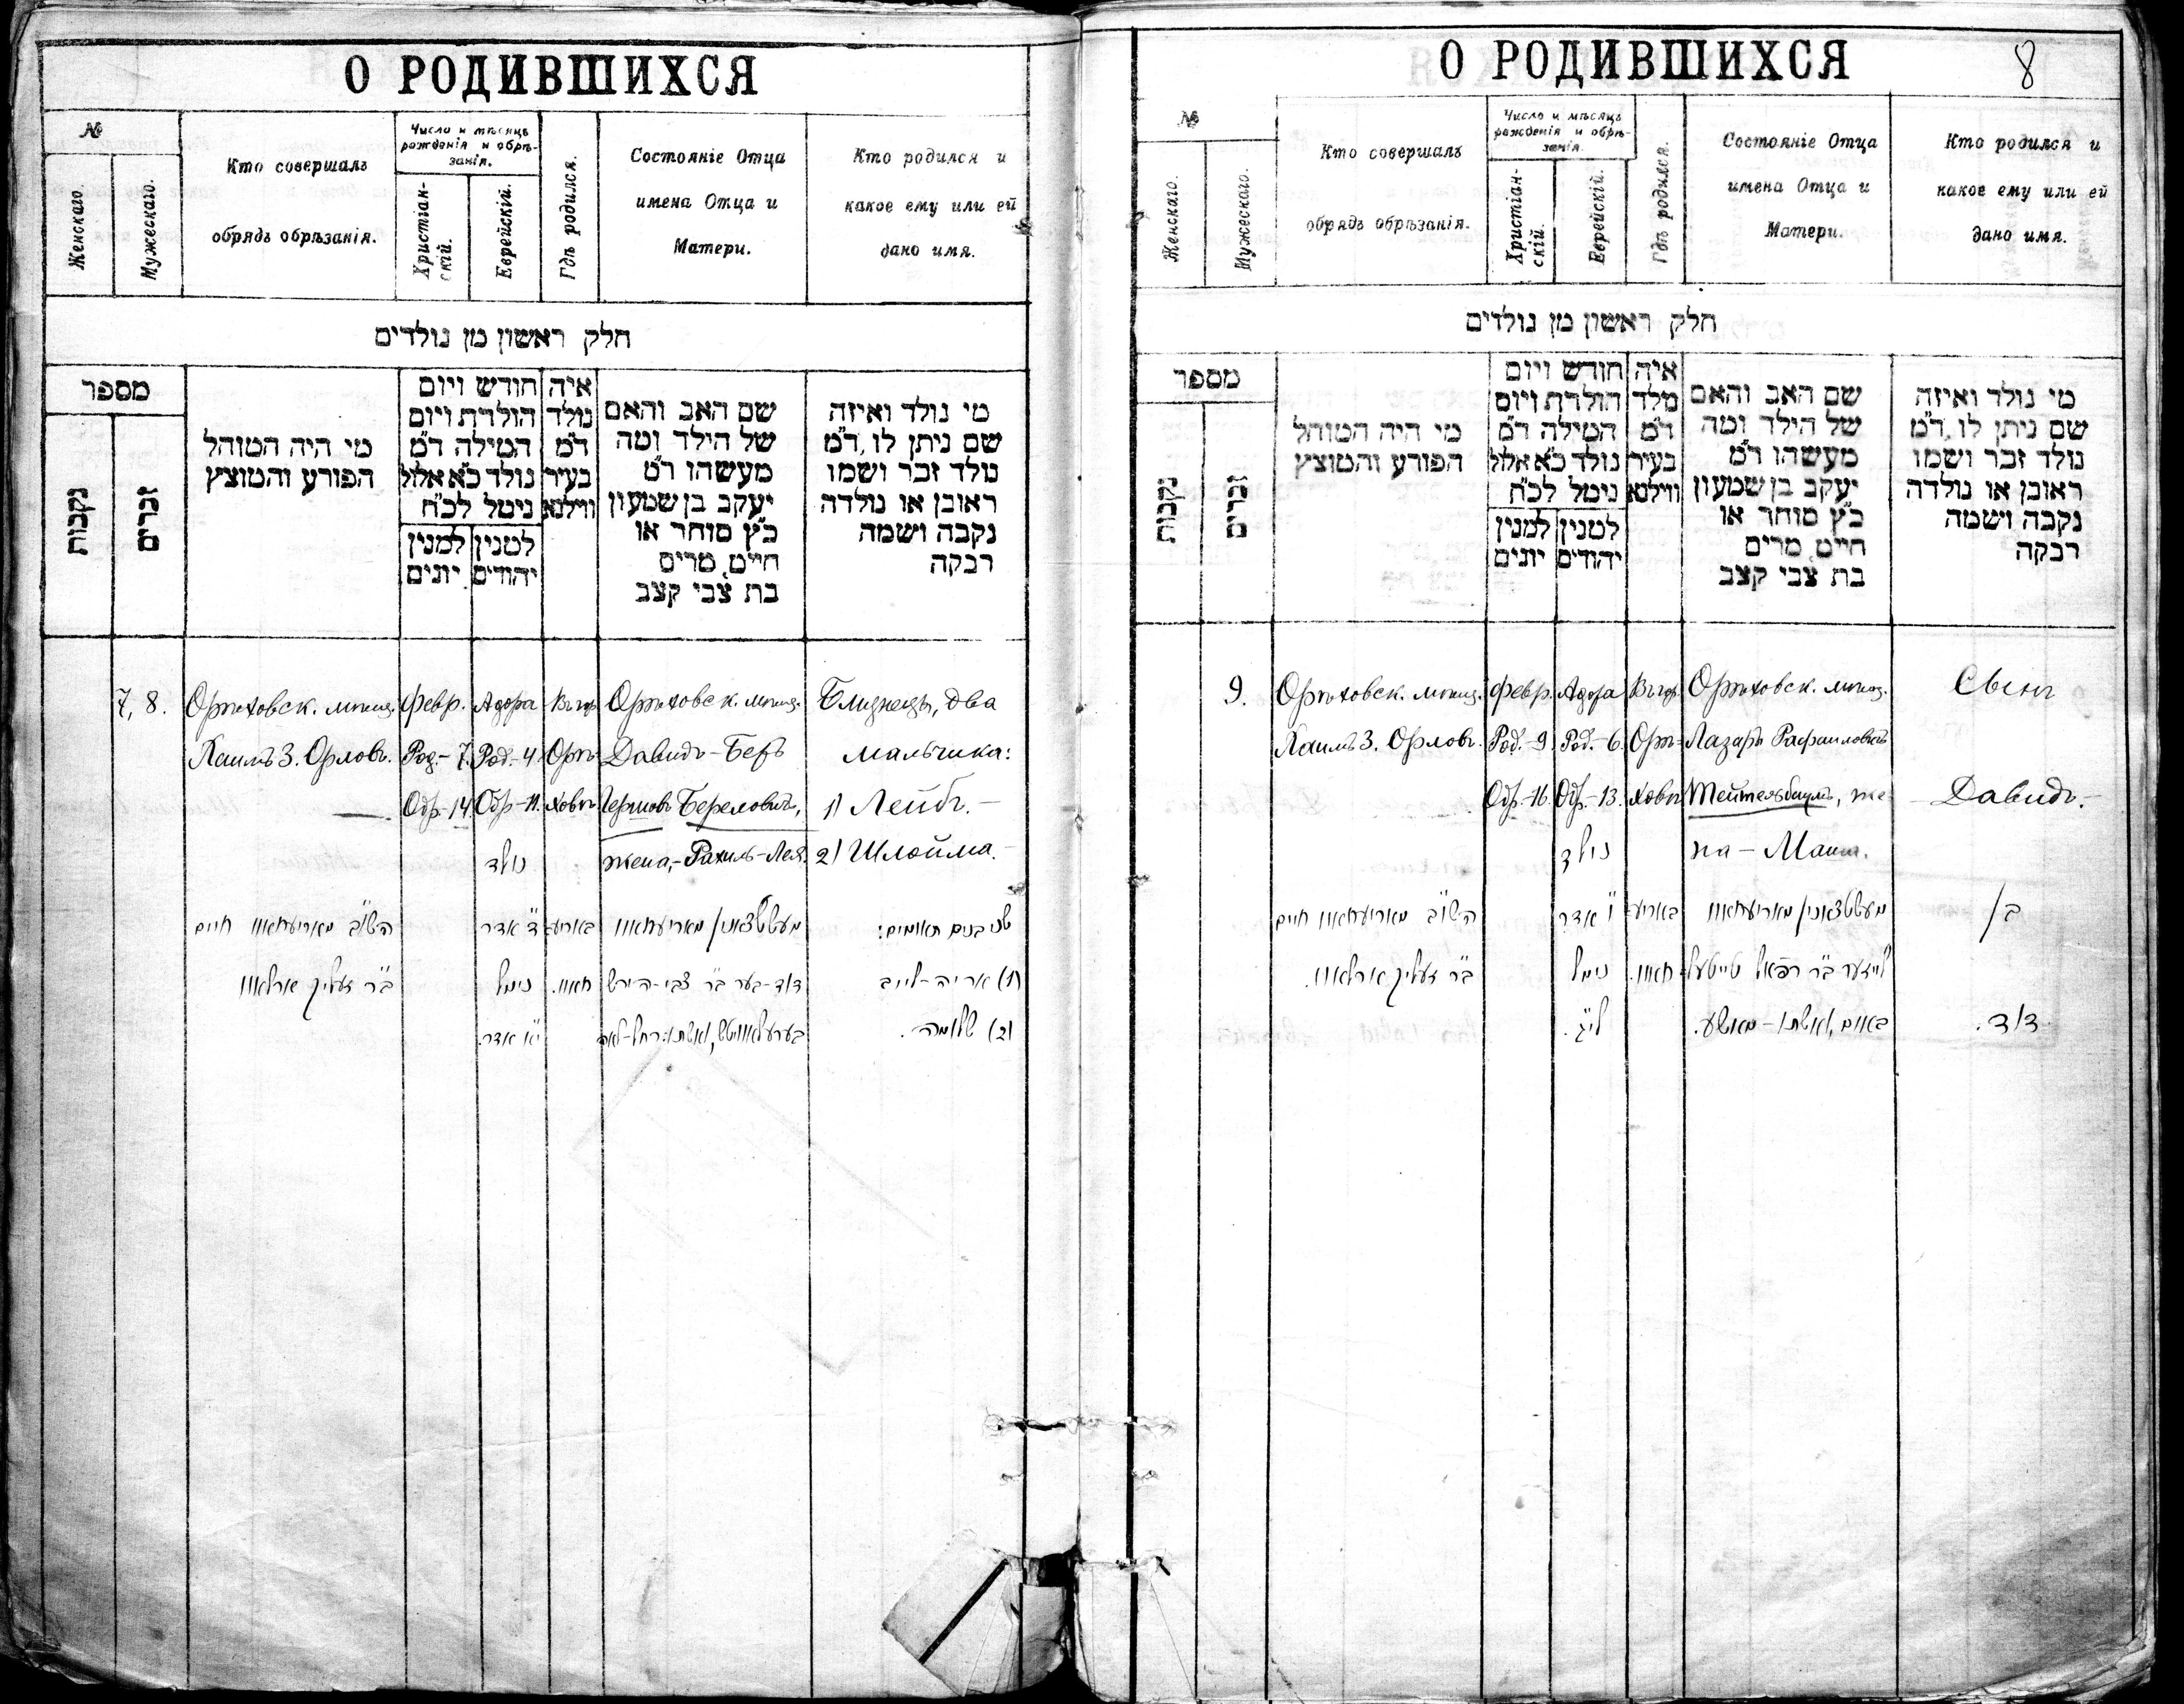 О РОДИВШИХСЯ
№
Женскаго.
Мужескаго.
Кто совершалъ
обрядъ обрѣзанія.
Число и мѣсяцъ
рожденія и обрѣ-
занія.
Христіан-
скій.
Еврейскій.
Гдѣ родился.
Состояніе Отца
имена Отца и
Матери.
Кто родился и
какое ему или ей
дано имя.
חלק ראשון מן נולדים
מספר
נקבות
זכרים
מי היה המוהל
הפורע והמוצץ
חודש ויום
הולדת ויום
המילה ד"מ
נולד כ"א אלול
נימל לכ"ח
למנין
יונים
למנין
יהודים
איה
נולד
ד"מ
בעיר
ווילנא
שם האב והאם
של הילד ומה
מעשהו ד"מ
יעקב בן שמעון
כ"ץ סוחר או
חייט, מרים
בת צבי קצב
מי נולד ואיזה
שם ניתן לו, ד"מ
נולד זכר ושמו
ראובן או נולדה
נקבה ושמה
רבקה
7, 8.
Орѣховск. мѣщ.
Хаимъ З. Орловъ.
Февр.
Род.- 7.
Обр.-14.
Адора
Род.-4.
Обр-11.
Въ гор.
Орѣ-
ховѣ
Орѣховск. мѣщ.
Давидъ-Беръ
Гершовъ Береловичъ,
жена,-Рахиль-Лея.
Близнецы, два
мальчика:
1) Лейбъ.-
2) Шлойма.-
חיים
ב"ר זעליק ארלאוו
נולד
ד' אדר
נימל
י"א אדר.
דוד-בער ב"ר צבי-הירש
בערעלאוויטש, ואשתו: רחל-לאה
שני בנים תאומים:
1) אריה-לייב
2) שלמה.
О РОДИВШИХСЯ
8
№
Женскаго.
Мужескаго.
Кто совершалъ
обрядъ обрѣзанія.
Число и мѣсяцъ
рожденія и обрѣ-
занія.
Христіан-
скій.
Еврейскій.
Гдѣ родился.
Состояніе Отца
имена Отца и
Матери.
Кто родился и
какое ему или ей
дано имя.
חלק ראשון מן נולדים
מספר
נקבות
זכרים
מי היה המוהל
הפורע והמוצץ
חודש ויום
הולדת ויום
המילה ד"מ
נולד כ"א אלול
נימל לכ"ח
למנין
יונים
למנין
יהודים
איה
נולד
ד"מ
בעיר
ווילנא
שם האב והאם
של הילד ומה
מעשהו ד"מ
יעקב בן שמעון
כ"ץ סוחר או
חייט, מרים
בת צבי קצב
מי נולד ואיזה
שם ניתן לו, ד"מ
נולד זכר ושמו
ראובן או נולדה
נקבה ושמה
רבקה
9.
Орѣховск. мѣщ.
Хаимъ З. Орловъ.
Февр.
Род.-9.
Обр.-16.
Адора
Род.-6.
Обр.-13.
Въ гор.
Орѣ-
ховѣ
Орѣховск. мѣщ.
Лазарь Рафаиловъ
Тейтельбаумъ, же-
на - Маша.
Сынъ
Давидъ.-
חיים
ב"ר זעליק ארלאוו.
נולד
ו' אדר
נימל
לי"ג.
לייזער ב"ר רפאל טייטעל-
בוים, ואשתו-מאשע.
בן
דוד.